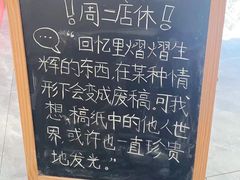 ！周二店休！
“回忆里熠熠生
辉的东西，在某种情
形下会变成废稿，可我
想，稿纸中的他人世
界，或许也一直珍贵
地发光。”